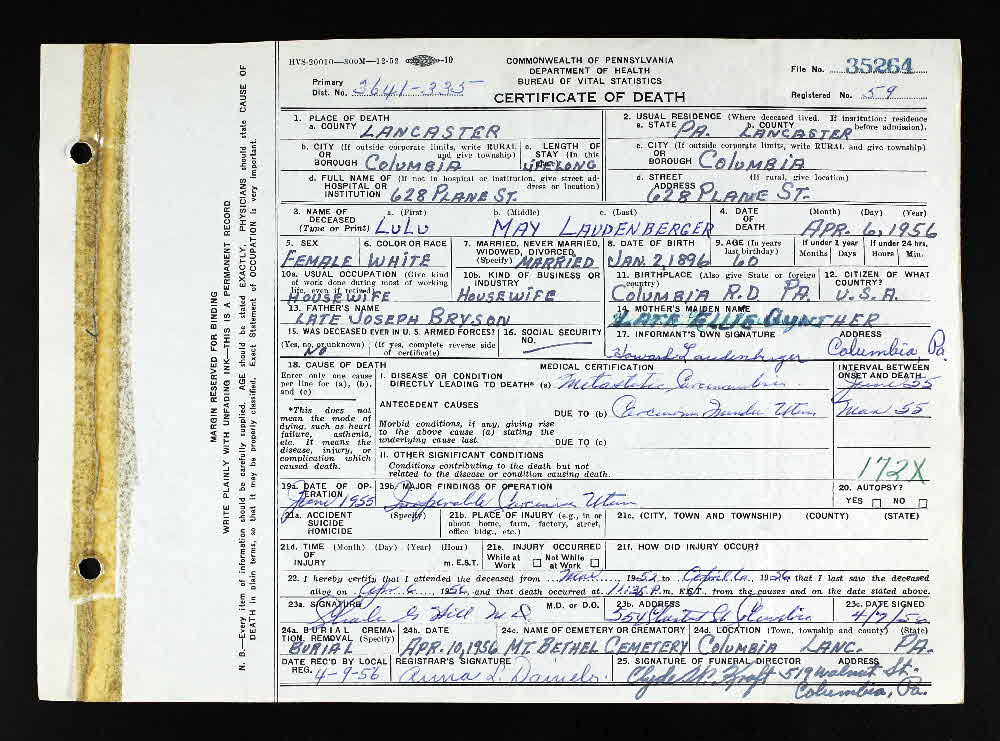 HVS-20010—300M—12-52 —10
COMMONWEALTH OF PENNSYLVANIA
DEPARTMENT OF HEALTH
BUREAU OF VITAL STATISTICS
CERTIFICATE OF DEATH
File No. 35264
Primary
Dist. No. 3641-335
Registered No. 59
MARGIN RESERVED FOR BINDING
WRITE PLAINLY WITH UNFADING INK—THIS IS A PERMANENT RECORD
N. B.—Every item of information should be carefully supplied. AGE should be stated EXACTLY. PHYSICIANS should state CAUSE OF
DEATH in plain terms, so that it may be properly classified. Exact Statement of OCCUPATION is very important.
1. PLACE OF DEATH
a. COUNTY LANCASTER
2. USUAL RESIDENCE (Where deceased lived. If institution: residence
a. STATE PA. b. COUNTY LANCASTER before admission).
b. CITY (If outside corporate limits, write RURAL
OR and give township)
BOROUGH COLUMBIA
c. LENGTH OF
STAY (in this
LIFELONG
c. CITY (If outside corporate limits, write RURAL and give township)
OR
BOROUGH COLUMBIA
d. FULL NAME OF (If not in hospital or institution, give street ad-
HOSPITAL OR dress or location)
INSTITUTION 628 PLANE ST.
d. STREET (If rural, give location)
ADDRESS
628 PLANE ST.
3. NAME OF a. (First) b. (Middle) c. (Last)
DECEASED
(Type or Print) LULU MAY LAUDENBERGER
4. DATE (Month) (Day) (Year)
OF
DEATH APR. 6, 1956
5. SEX
FEMALE
6. COLOR OR RACE
WHITE
7. MARRIED, NEVER MARRIED,
WIDOWED, DIVORCED
(Specify) MARRIED
8. DATE OF BIRTH
JAN. 2, 1896
9. AGE (In years
last birthday)
60
If under 1 year
Months Days
If under 24 hrs.
Hours Min.
10a. USUAL OCCUPATION (Give kind
of work done during most of working
life, even if retired)
HOUSEWIFE
10b. KIND OF BUSINESS OR
INDUSTRY
HOUSEWIFE
11. BIRTHPLACE (Also give State or foreign
country)
COLUMBIA R.D. PA.
12. CITIZEN OF WHAT
COUNTRY?
U.S.A.
13. FATHER'S NAME
LATE JOSEPH BRYSON
14. MOTHER'S MAIDEN NAME
LATE GUNTHER
15. WAS DECEASED EVER IN U. S. ARMED FORCES?
(Yes, no, or unknown) (If yes, complete reverse side
of certificate)
NO
16. SOCIAL SECURITY
NO.
17. INFORMANT'S OWN SIGNATURE ADDRESS
Howard Laudenberger Columbia, Pa.
18. CAUSE OF DEATH
Enter only one cause
per line for (a), (b),
and (c)
*This does not
mean the mode of
dying, such as heart
failure, asthenia,
etc. It means the
disease, injury, or
complication which
caused death.
MEDICAL CERTIFICATION
I. DISEASE OR CONDITION
DIRECTLY LEADING TO DEATH* (a) Metastatic
INTERVAL BETWEEN
ONSET AND DEATH
June 55
ANTECEDENT CAUSES
DUE TO (b) Carcinoma Fundus Uteri
Mar 55
Morbid conditions, if any, giving rise
to the above cause (a) stating the
underlying cause last. DUE TO (c)
II. OTHER SIGNIFICANT CONDITIONS
Conditions contributing to the death but not
related to the disease or condition causing death.
172X
19a. DATE OF OP-
ERATION
June 1955
19b. MAJOR FINDINGS OF OPERATION
Inoperable Carcinoma Uteri
20. AUTOPSY?
YES NO
21a. ACCIDENT (Specify)
SUICIDE
HOMICIDE
21b. PLACE OF INJURY (e.g., in or
about home, farm, factory, street,
office bldg., etc.)
21c. (CITY, TOWN AND TOWNSHIP) (COUNTY) (STATE)
21d. TIME (Month) (Day) (Year) (Hour)
OF
INJURY m. E.S.T.
21e. INJURY OCCURRED
While at Work Not While at Work
21f. HOW DID INJURY OCCUR?
22. I hereby certify that I attended the deceased from Mar 1952 to April 6 1956 that I last saw the deceased
alive on Apr. 6 1956, and that death occurred at m. E.S.T., from the causes and on the date stated above.
23a. SIGNATURE M.D. or D.O.
G. Hill M.D.
23b. ADDRESS
554 Chestnut St. Columbia
23c. DATE SIGNED
4/7/56
24a. BURIAL CREMA-
TION, REMOVAL (Specify)
BURIAL
24b. DATE
APR. 10, 1956
24c. NAME OF CEMETERY OR CREMATORY
MT. BETHEL CEMETERY
24d. LOCATION (Town, township and county) (State)
COLUMBIA LANC. PA.
DATE REC'D BY LOCAL
REG. 4-9-56
REGISTRAR'S SIGNATURE
Anna L. Daniels
25. SIGNATURE OF FUNERAL DIRECTOR ADDRESS
Clyde W. Kraft 519 Walnut St.
Columbia, Pa.